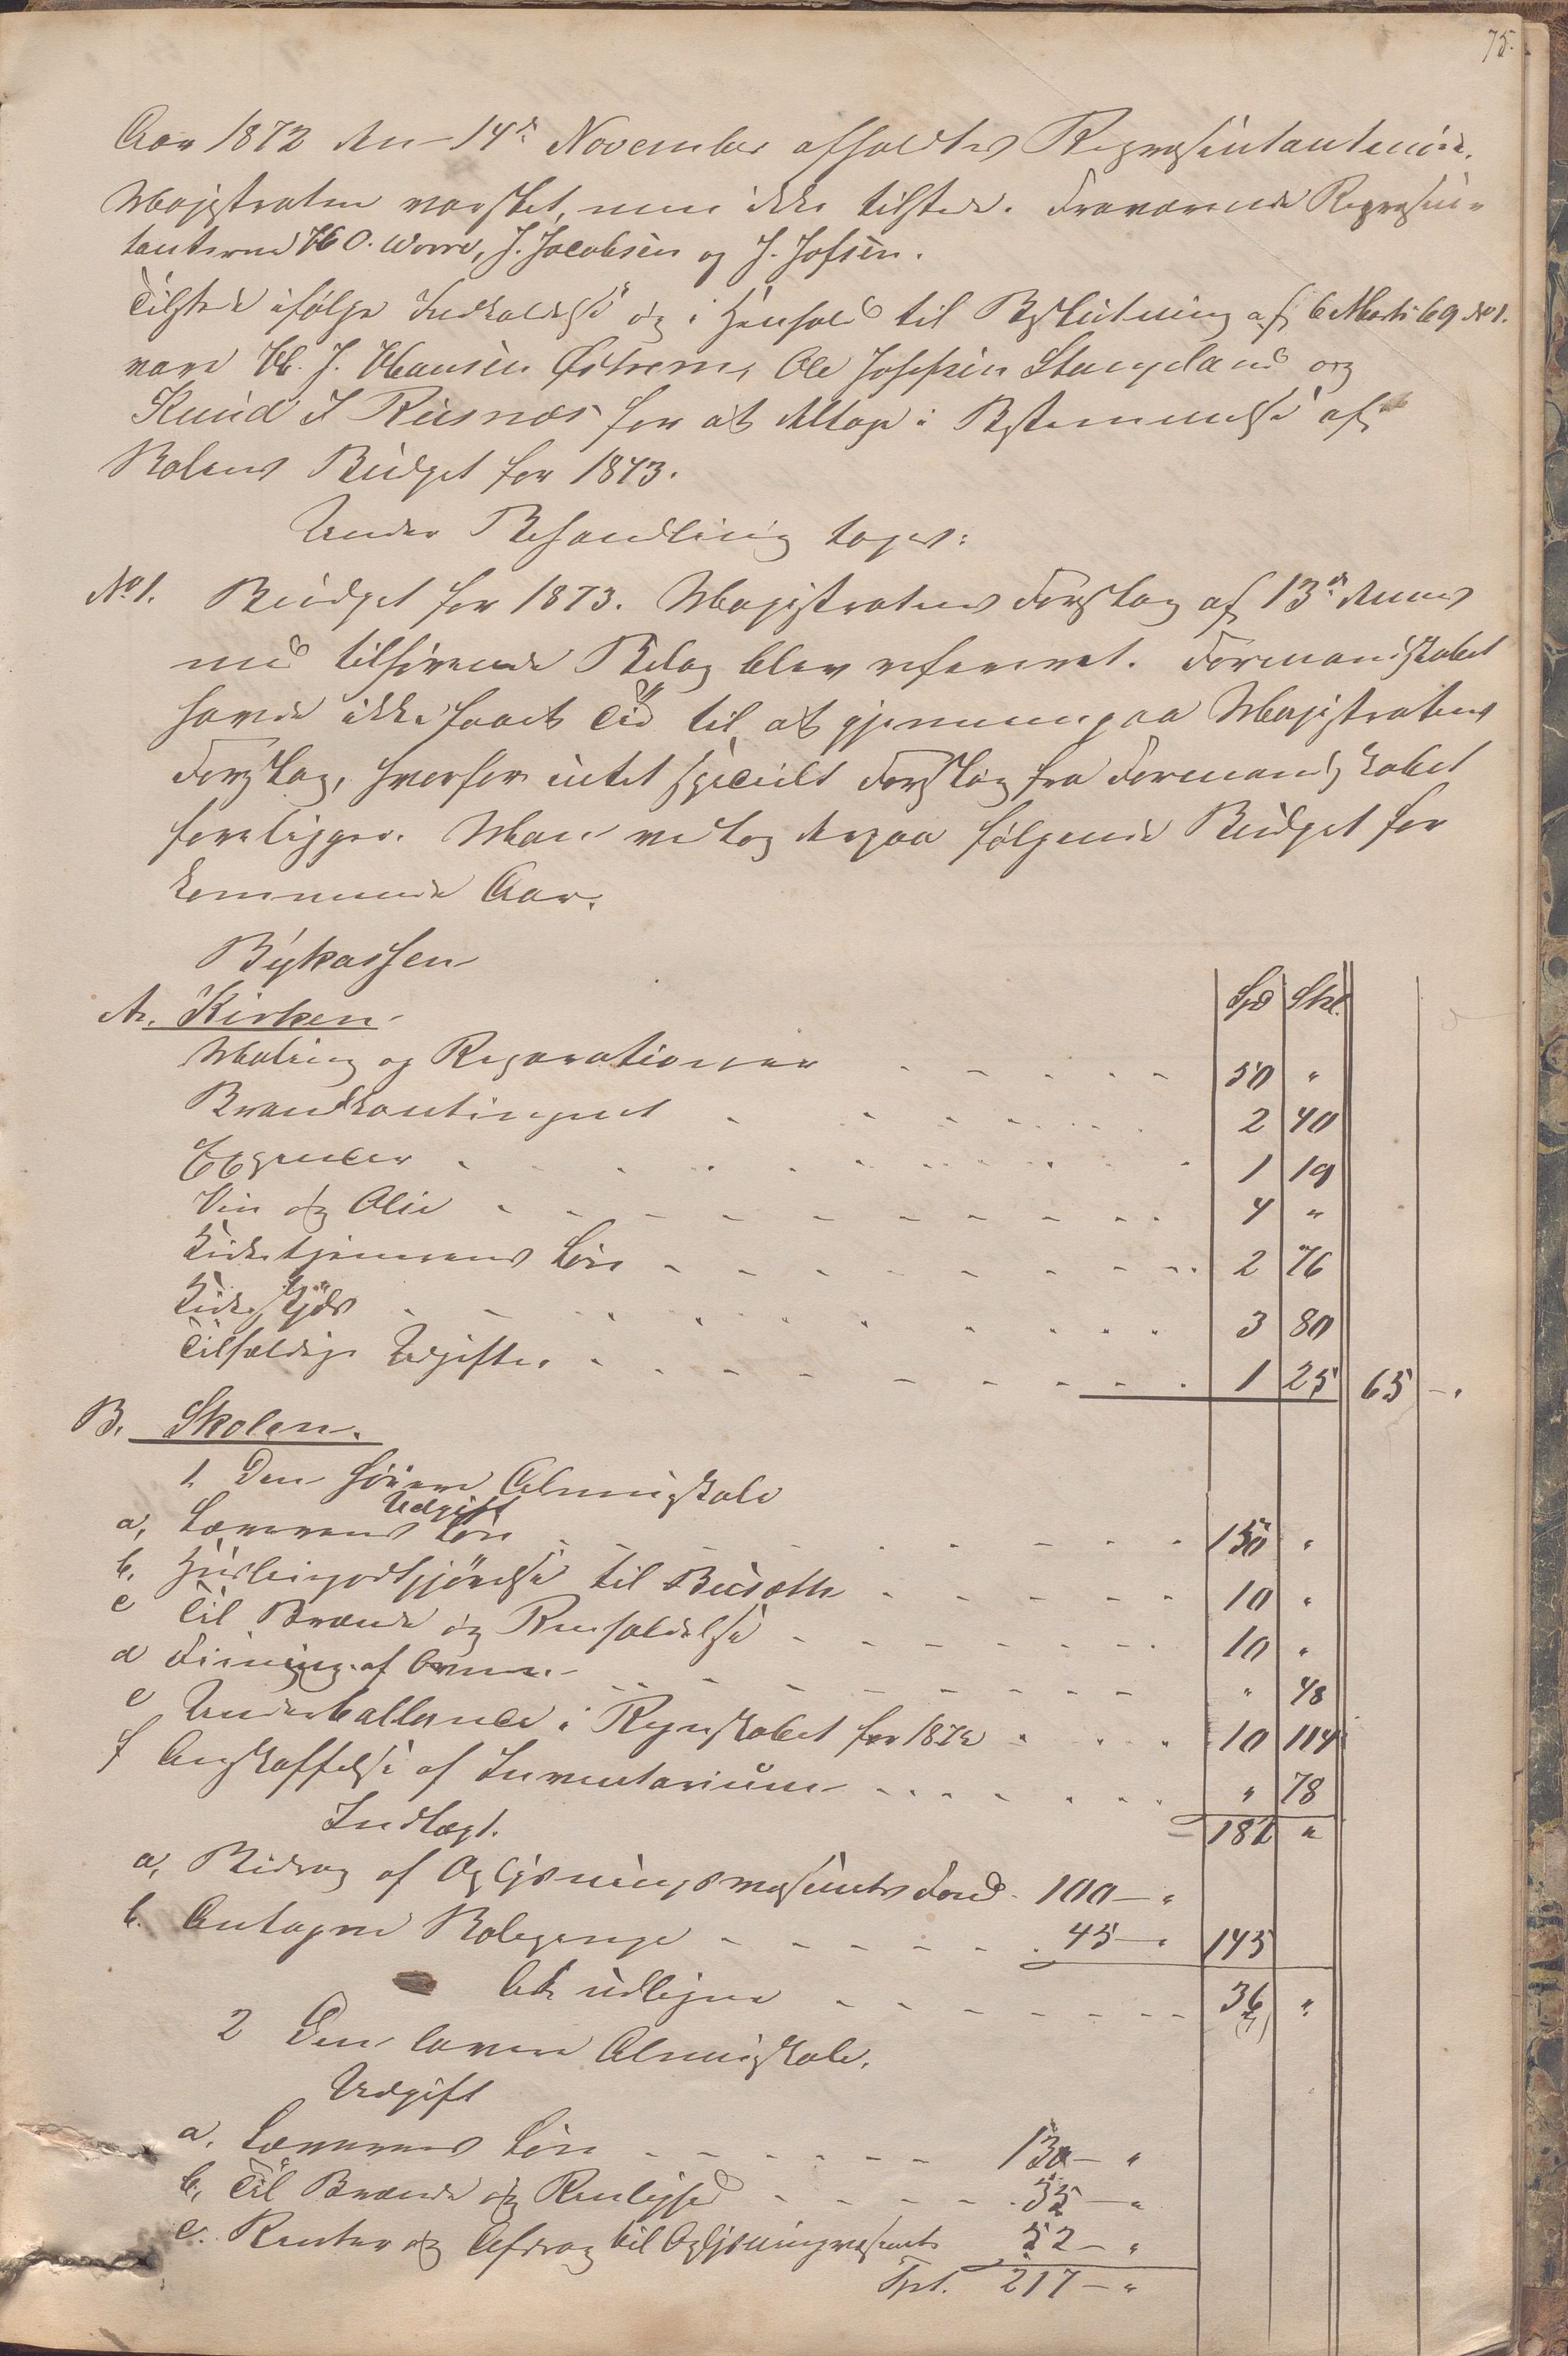 75.
Aar 1872 den 14de November afholdtes Repræsentantmøde.
Magistraten varslet, men ikke tilstede. Fraværende Repræsen-
tanterne H O. Worre, J. Jacobsen og J. Jossen.
Tilstede ifølge Indkaldelse og i Henhold til Beslutning af 6 Marts 69 No 1.
vare H. J. Hansen Østrem, Ole Josephsen Stangeland og
Knud J Rusnæs for at deltage i Bestemmelse af
Skolens Budget for 1873.
Under Behandling toges:
No 1. Budget for 1873. Magistratens Forslag af 13de dennes
med tilhørende Bilag blev refereret. Formandskabet
havde ikke havt Tid til at gjennemgaa Magistratens
Forslag, hvorfor intet specielt Forslag fra Formandskabet
foreligger. Man vedtog derpaa følgende Budget for
kommende Aar.
Bykassen
Spd Skl.
A. Kirken
Maling og Reparationer 50 "
Brandkontingent 2 40
1 19
Vin og Olie 4 "
Kirketjenerens Løn 2 76
3 80
Tilfældige Udgifter 1 25 65 - "
B. Skolen.
1. Den høiere Almueskole
Udgift
a. Lærerens Løn 150 "
b. Husleiegodtgjørelse til Busæth 10 "
c Til Brænde og Renholdelse 10 "
d Feining af Ovne " 48
e Underballance i Regnskabet for 1872 10 114
f Anskaffelse af Inventarium " 78
182 "
Indtægt.
a. Bidrag af Oplysningsvæsenets Fond 100 - "
b. Antagne Skolepenge 45 - " 145
At udligne 36 "
2 Den lavere Almueskole.
Udgift
a. Lærerens Løn 130 - "
b. Til Brænde og Renlighed 35 - "
c. Renter og Afdrag til Oplysningsvæsenets 52 - "
Tpt. 217 - "